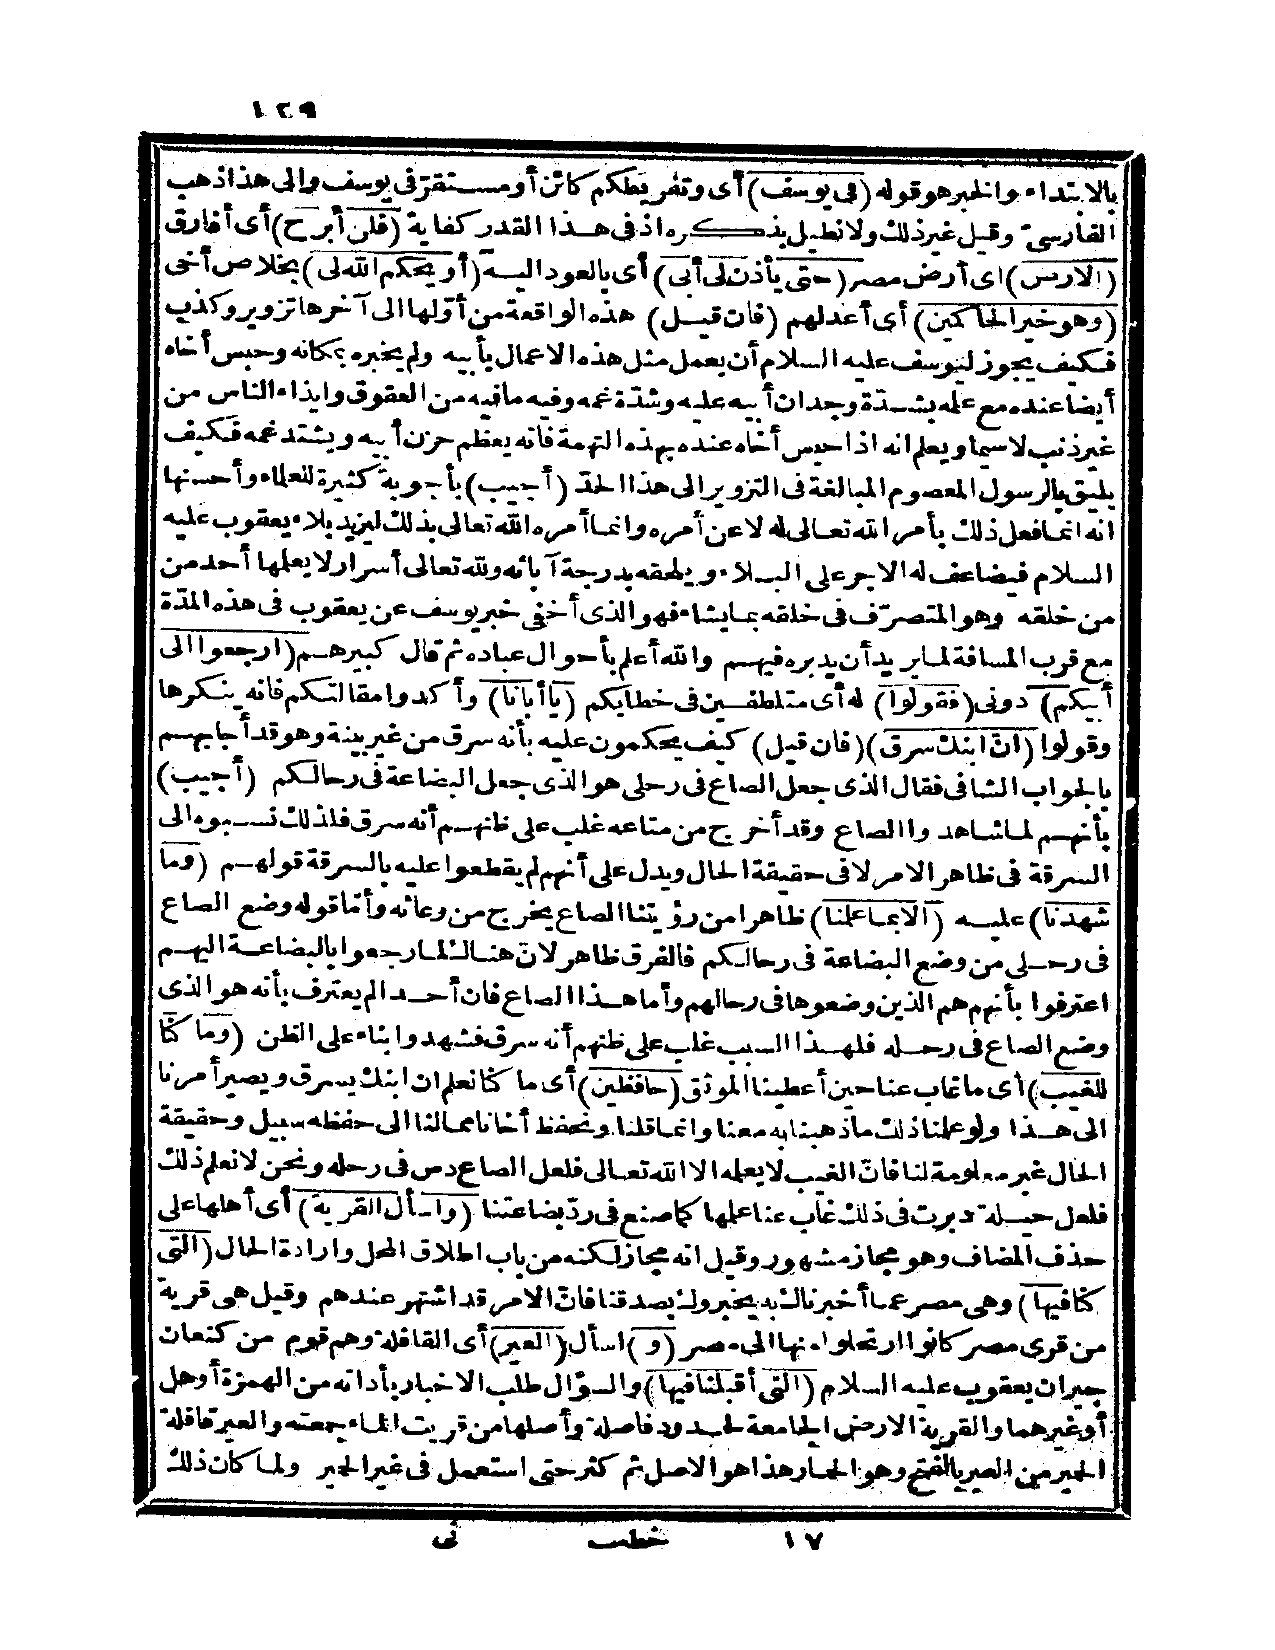 ١٢٩
بالابتداء والخبر هو قوله (في يوسف) أى وتفريطكم كائن أو مستقرّ فى يوسف والى هذا ذهب
الفارسى وقيل غير ذلك ولا نطيل بذكره اذ فى هذا القدر كفاية (فلن أبرح) أى أفارق
(الارض) اى أرض مصر (حتى يأذن لى أبى) أى بالعود اليه (أو يحكم الله لى) بخلاص أخى
(وهو خير الحاكمين) أى أعدلهم (فان قيل) هذه الواقعة من أوّلها الى آخرها تزوير وكذب
فكيف يجوز ليوسف عليه السلام أن يعمل مثل هذه الاعمال بأبيه ولم يخبره بمكانه وحبس أخاه
أيضا عنده مع علمه بشدة وجدان أبيه عليه وشدّة غمه وفيه ما فيه من العقوق وايذاء الناس من
غير ذنب لا سيما ويعلم انه اذا حبس أخاه عنده بهذه التهمة فانه يعظم حزن أبيه ويشتد غمه فكيف
يليق بالرسول المعصوم المبالغة فى التزوير الى هذا الحدّ (أجيب) بأجوبة كثيرة للعلماء وأحسنها
انه انما فعل ذلك بأمر الله تعالى له لا عن أمره وانما أمره الله تعالى بذلك ليزيد بلاء يعقوب عليه
السلام فيضاعف له الاجر على البلاء ويلحقه بدرجة آبائه ولله تعالى أسرار لا يعلمها أحد من
من خلقه وهو المتصرّف فى خلقه بما يشاء فهو الذى أخفى خبر يوسف عن يعقوب فى هذه المدّة
مع قرب المسافة لما يريد أن يدبره فيهم والله أعلم بأحوال عباده ثم قال كبيرهم (ارجعوا الى
أبيكم) دونى (فقولوا) له أى متلطفين فى خطابكم (يا أبانا) وأكدوا مقالتكم فانه ينكرها
وقولوا (انّ ابنك سرق) (فان قيل) كيف يحكمون عليه بأنه سرق من غير بينة وهو قد أجابهم
بالجواب الشافى فقال الذى جعل الصاع فى رحلى هو الذى جعل البضاعة فى رحالكم (أجيب)
بأنهم لما شاهدوا الصاع وقد أخرج من متاعه غلب على ظنهم أنه سرق فلذلك نسبوه الى
السرقة فى ظاهر الامر لا فى حقيقة الحال ويدل على أنهم لم يقطعوا عليه بالسرقة قولهم (وما
شهدنا) عليه (الا بما علمنا) ظاهرا من رؤيتنا الصاع يخرج من وعائه وأمّا قوله وضع الصاع
فى رحلى من وضع البضاعة فى رحالكم فالفرق ظاهر لانّ هناك لما رجعوا بالبضاعة اليهم
اعترفوا بأنهم هم الذين وضعوها فى رحالهم وأما هذا الصاع فان أحدا لم يعترف بأنه هو الذى
وضع الصاع فى رحله فلهذا السبب غلب على ظنهم أنه سرق فشهدوا بناء على الظن (وما كنا
للغيب) أى ما غاب عنا حين أعطينا الموثق (حافظين) أى ما كنا نعلم ان ابنك يسرق ويصير أمرنا
الى هذا ولو علمنا ذلك ما ذهبنا به معنا وانما قلنا ونحفظ أخانا مما لنا الى حفظه سبيل وحقيقة
الحال غير معلومة لنا فانّ الغيب لا يعلمه الا الله تعالى فلعل الصاع دس فى رحله ونحن لا نعلم ذلك
فلعل حيلة دبرت فى ذلك غاب عنا علمها كما صنع فى ردّ بضاعتنا (واسأل القرية) أى أهلها على
حذف المضاف وهو مجاز مشهور وقيل انه مجاز لكنه من باب اطلاق المحل وارادة الحال (التى
كنا فيها) وهى مصر عما أخبرناك به يخبروك بصدقنا فانّ الامر قد اشتهر عندهم وقيل هى قرية
من قرى مصر كانوا ارتحلوا منها الى مصر (و) اسأل (العير) أى القافلة وهم قوم من كنعان
جيران يعقوب عليه السلام (التى أقبلنا فيها) والسؤال طلب الاخبار بأداته من الهمزة أو هل
أو غيرهما والقرية الارض الجامعة لحدود فاصلة وأصلها من قريت الماء جمعته والعير قافلة
الحمير من العير بالفتح وهو الحمار هذا هو الاصل ثم كثر حتى استعمل فى غير الحمير ولما كان ذلك
١٧ خطيب نى